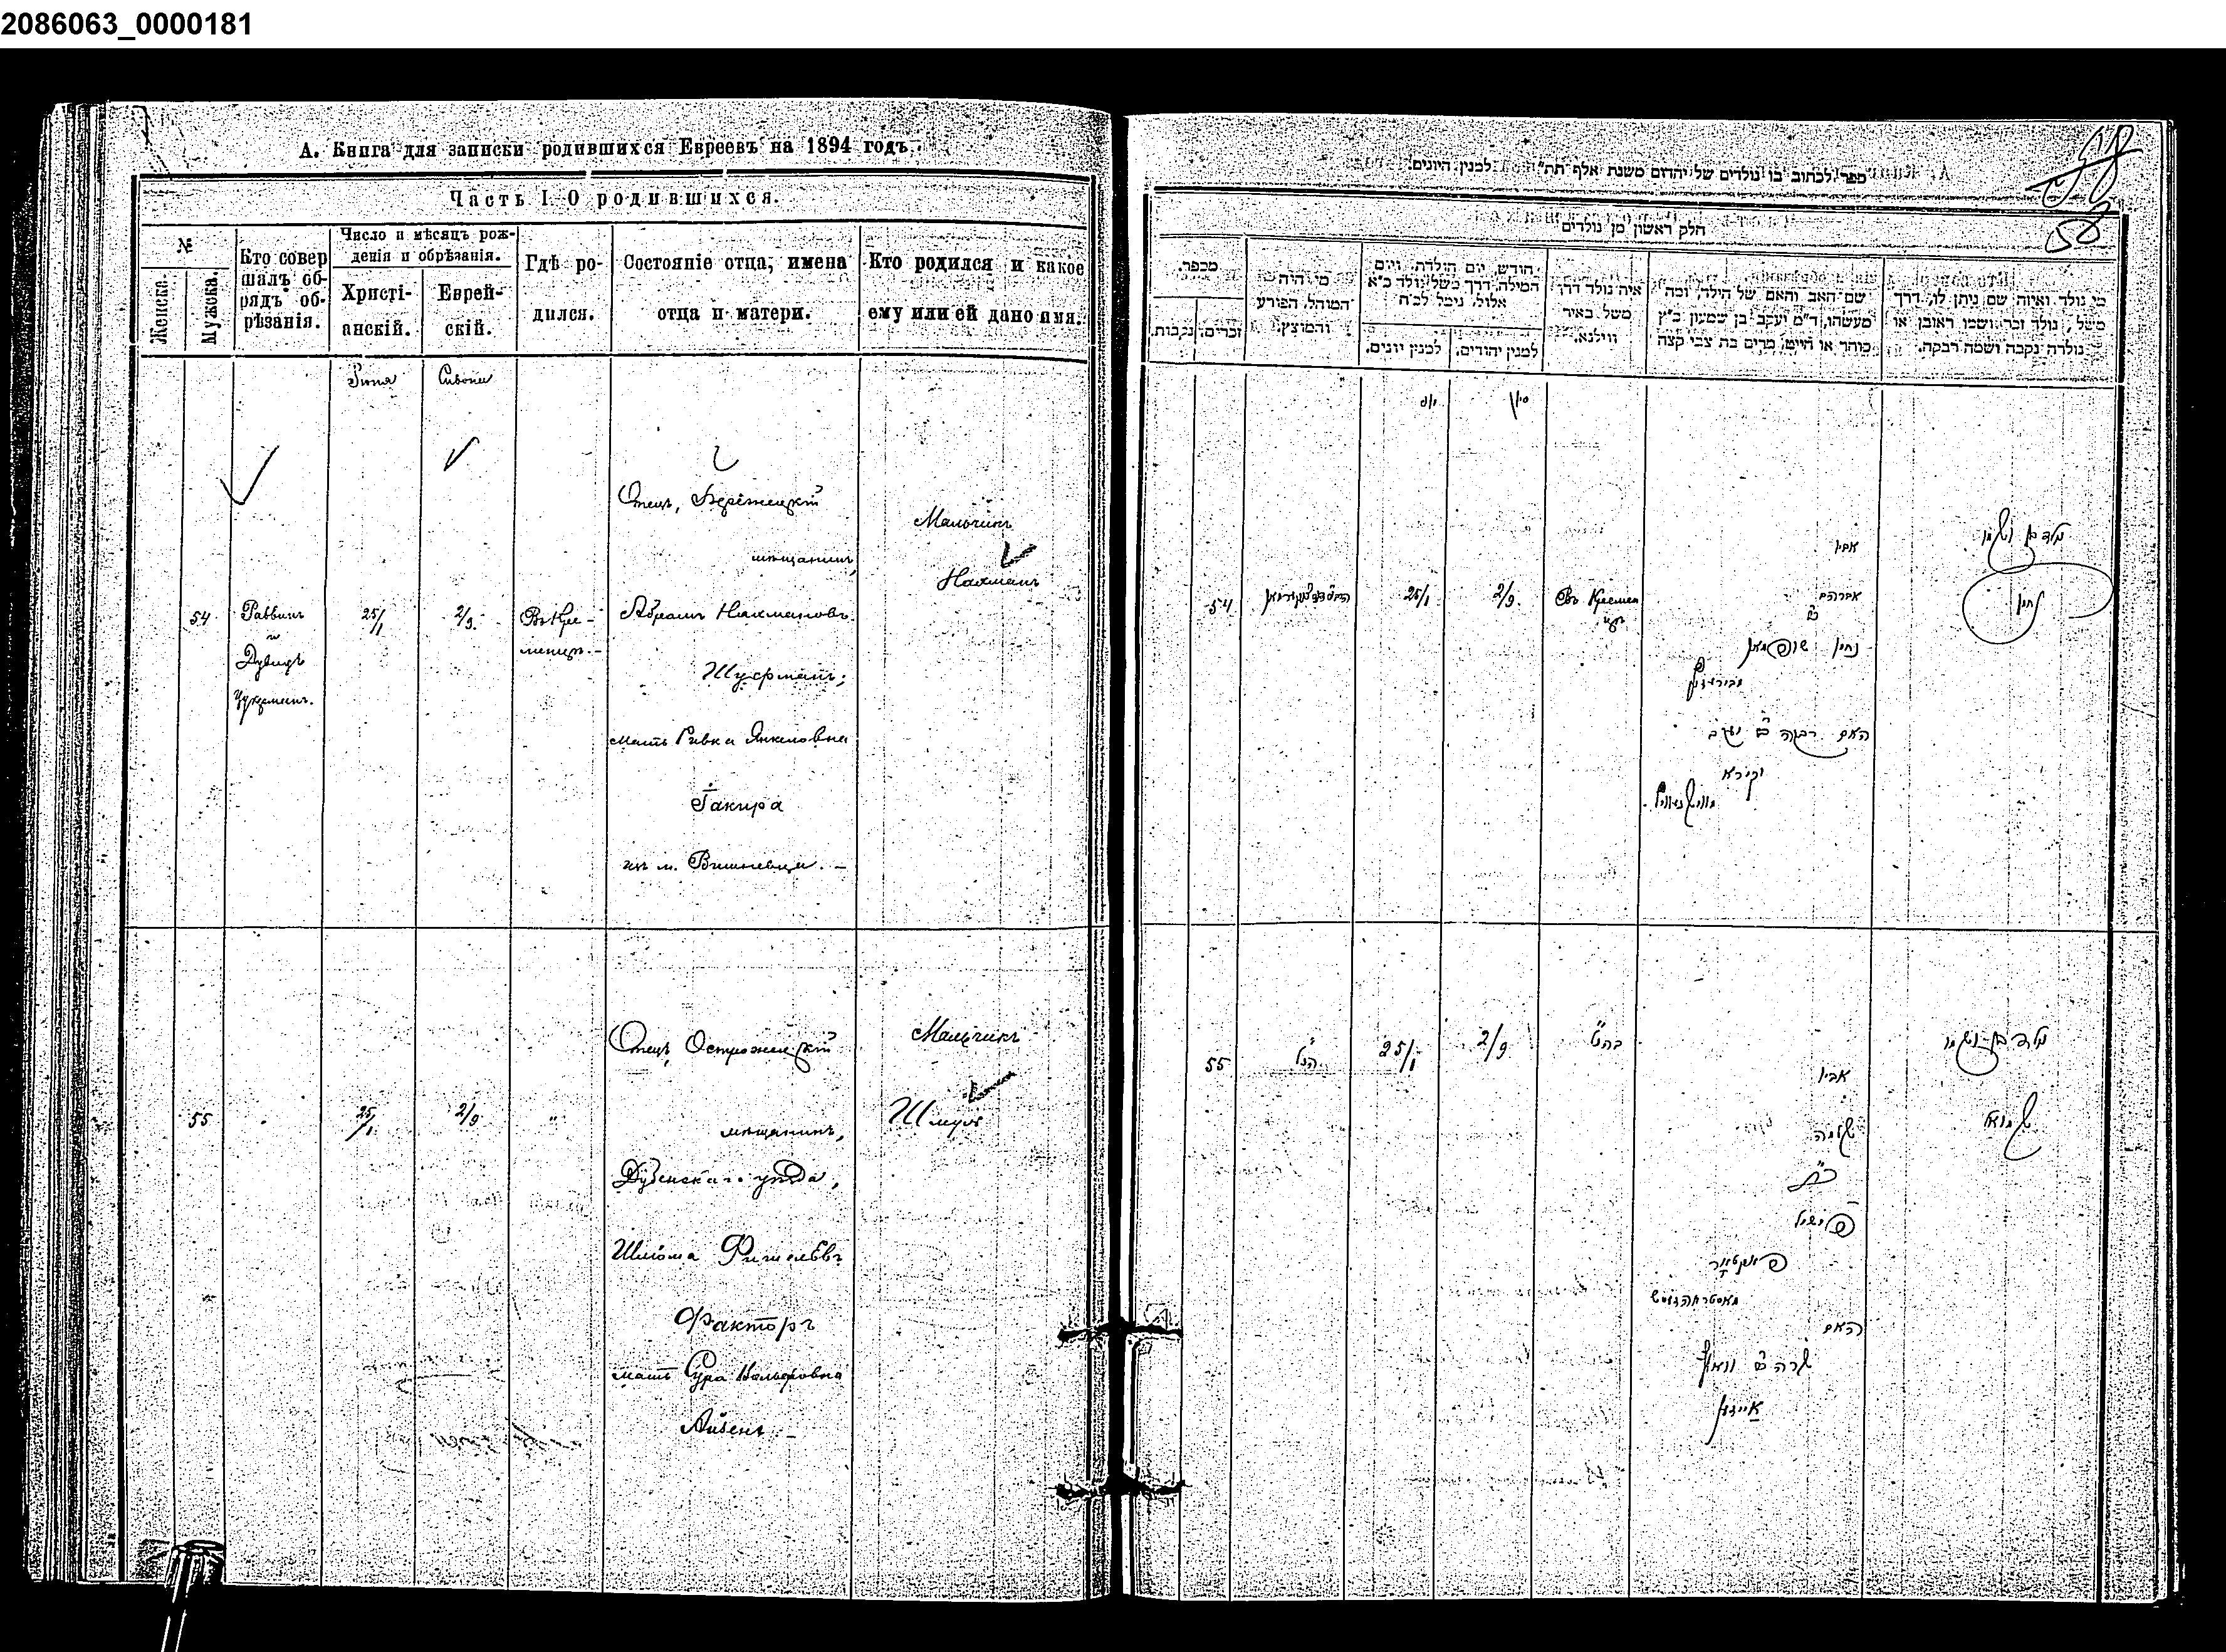 2086063_0000181
А. Книга для записки родившихся Евреевъ на 1894 годъ.
Часть I О родившихся.
№
Женска.
Мужска.
Кто совершалъ обрядъ обрѣзанія.
Число и мѣсяцъ рожденія и обрѣзанія.
Христіанскій.
Еврейскій.
Гдѣ родился.
Состояніе отца, имена отца и матери.
Кто родился и какое ему или ей дано имя.
Іюня
Сивона
54
Раввинъ
и
Дувидъ
Цукерманъ.
25/1
2/9.
Въ Кре-
менцѣ.-
Отецъ, Бережецкій
мѣщанинъ,
Абрамъ Нахмановъ
Шуфманъ;
мать Ривка Янкелевна
Гакира
изъ м. Вишневца. -
Мальчикъ
Нахманъ
55
25/1
2/9
"
Отецъ, Острожецкій
мѣщанинъ,
Дубенскаго уѣзда,
Шлёма Фишелевъ
Факторъ
мать Сура Вольфовна
Айзенъ -
Мальчикъ
Шмуль
58
ספר לכתוב בו נולדים של יהודים משנת אלף תת" למנין היונים.
חלק ראשון מן נולדים
מספר.
נקבות.
זכרים.
מי היה המוהל, הפורע והמוצץ.
חודש, יום הולדת, ויום המילה, דרך משל: נולד כ"א אלול, נימל לכ"ח
למנין יונים.
למנין יהודים.
איה נולד דרך משל. באיר ווילנא.
שם האב והאם של הילד, ומה מעשהו, ד"מ יעקב בן שמעון כ"ץ סוחר או חייט, מרים בת צבי קצה
מי נולד ואיזה שם ניתן לו, דרך משל, נולד זכר ושמו ראובן או נולדה נקבה ושמה רבקה.
יוני
סיון
54
25/1
2/9.
Въ Кремен
цѣ
אביו
אברהם
ב"ר
נחמן שופמאן
האם רבקה ב"ר יעקב
וקירא
נולד בן ושמו
נחמן
55
הנ"ל
25/1
2/9
כהנ"ל
אביו
שלמה
ב"ר
פישיל
פאקטאר
האם
שרה ב"ר וואלף
אייזען
נולד בן ושמו
שמואל